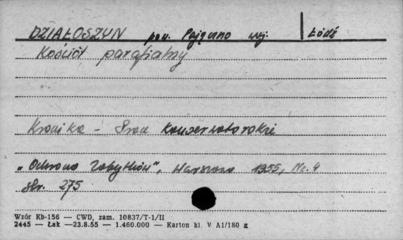 DZIAŁOSZYN pow. Pajęczno woj. Łódź
Kościół parafialny
Kronika - Prace konserwatorskie
„Ochrona Zabytków", Warszawa 1955, Nr. 4
str. 275
Wzór Kb-156 — CWD, zam. 10837/T-1/II
2445 — Łak —23.8.55 — 1.460.000 — Karton kl. V A1/180 g